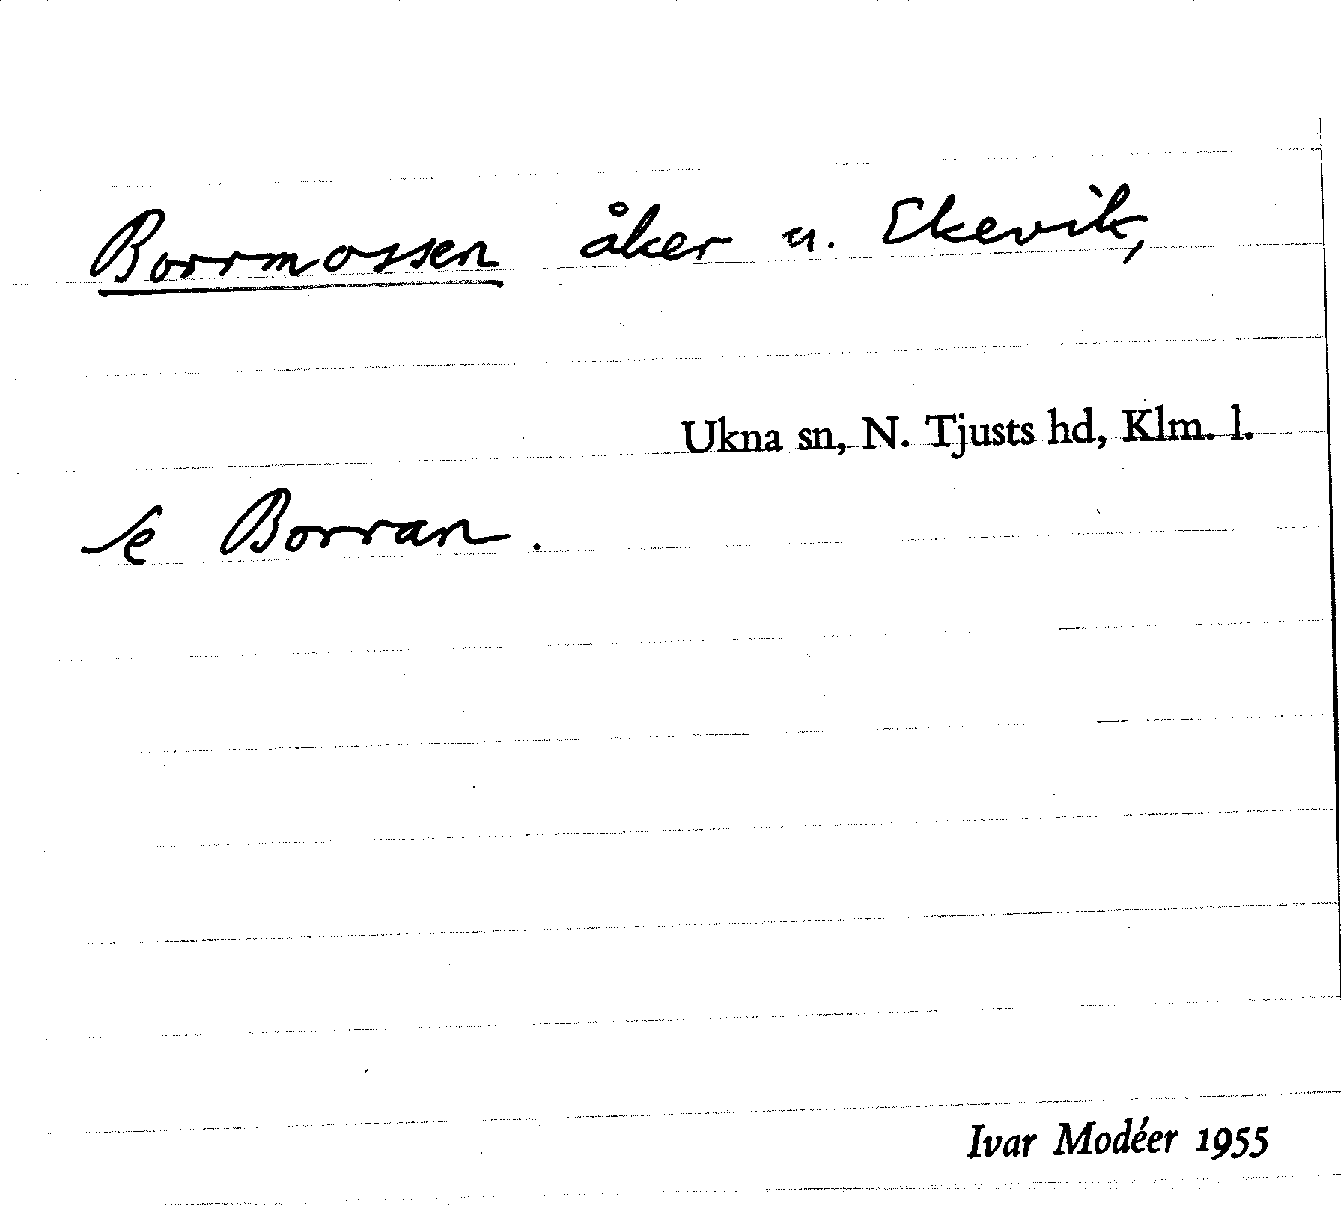 Borrmossen åker u. Ekevik,
Ukna sn, N. Tjusts hd, Klm. l.
Se Borran.
Ivar Modéer 1955